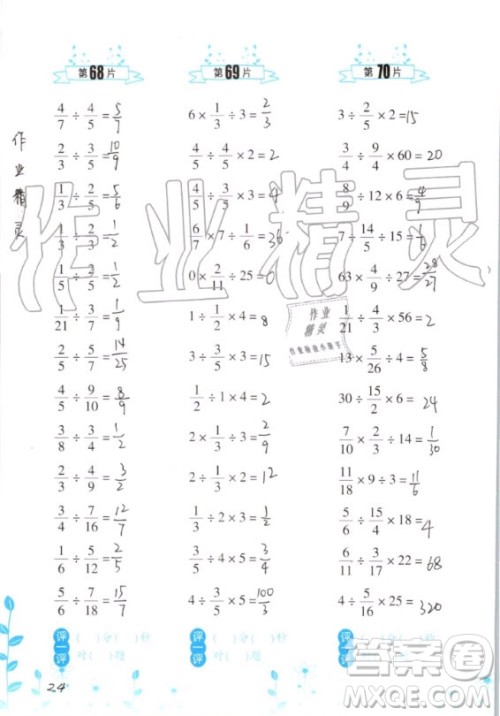 第68片
4/7 ÷ 4/5 = 5/7
2/3 ÷ 3/5 = 10/9
1/3 ÷ 2/5 = 5/6
1/3 ÷ 2/3 = 1/2
1/5 ÷ 2/5 = 1/2
1/21 ÷ 2/3 =
2/5 ÷ 5/7 = 14/25
4/5 ÷ 9/10 = 8/9
3/8 ÷ 3/4 = 1/2
2/3 ÷ 4/9 = 3/2
3/4 ÷ 7/16 = 12/7
1/6 ÷ 5/12 = 2/5
5/6 ÷ 7/18 = 15/7
第69片
6 × 1/3 ÷ 3 = 2/3
4/5 ÷ 4/5 × 2 = 2
4/5 ÷ 3/5 × 3 = 4
6/7 × 7 ÷ 1/6 = 36
0 × 2/11 ÷ 25 = 0
1 ÷ 1/2 × 4 = 8
3 ÷ 3/5 × 3 = 15
1/2 ÷ 1 × 4 = 2
2/3 × 1 ÷ 3 = 2/9
2 ÷ 1/3 × 2 = 12
1/3 ÷ 2 × 3 = 1/2
3/5 ÷ 4 × 5 = 3/4
4 ÷ 3/5 × 5 = 100/3
第70片
3 ÷ 2/5 × 2 = 15
3/4 ÷ 9/4 × 60 = 20
8/9 ÷ 12 × 6 = 4/9
7/5 ÷ 14/15 ÷ 15 =
63 × 4/9 ÷ 27 = 28/27
1/21 ÷ 4/3 × 56 = 2
13 × 5/26 ÷ 4 = 5/8
30 ÷ 15/2 × 6 = 24
7/10 × 2/3 ÷ 14 = 1/30
11/18 × 9 ÷ 3 = 11/6
5/6 ÷ 15/4 × 18 = 4
6/11 ÷ 3/17 × 22 = 68
4 ÷ 5/16 × 25 = 320
评一评 ( )分( )秒 对( )题
评一评 ( )分( )秒 对( )题
24
作业精灵
作业精灵
作业精灵
答案圈
MXQE.COM